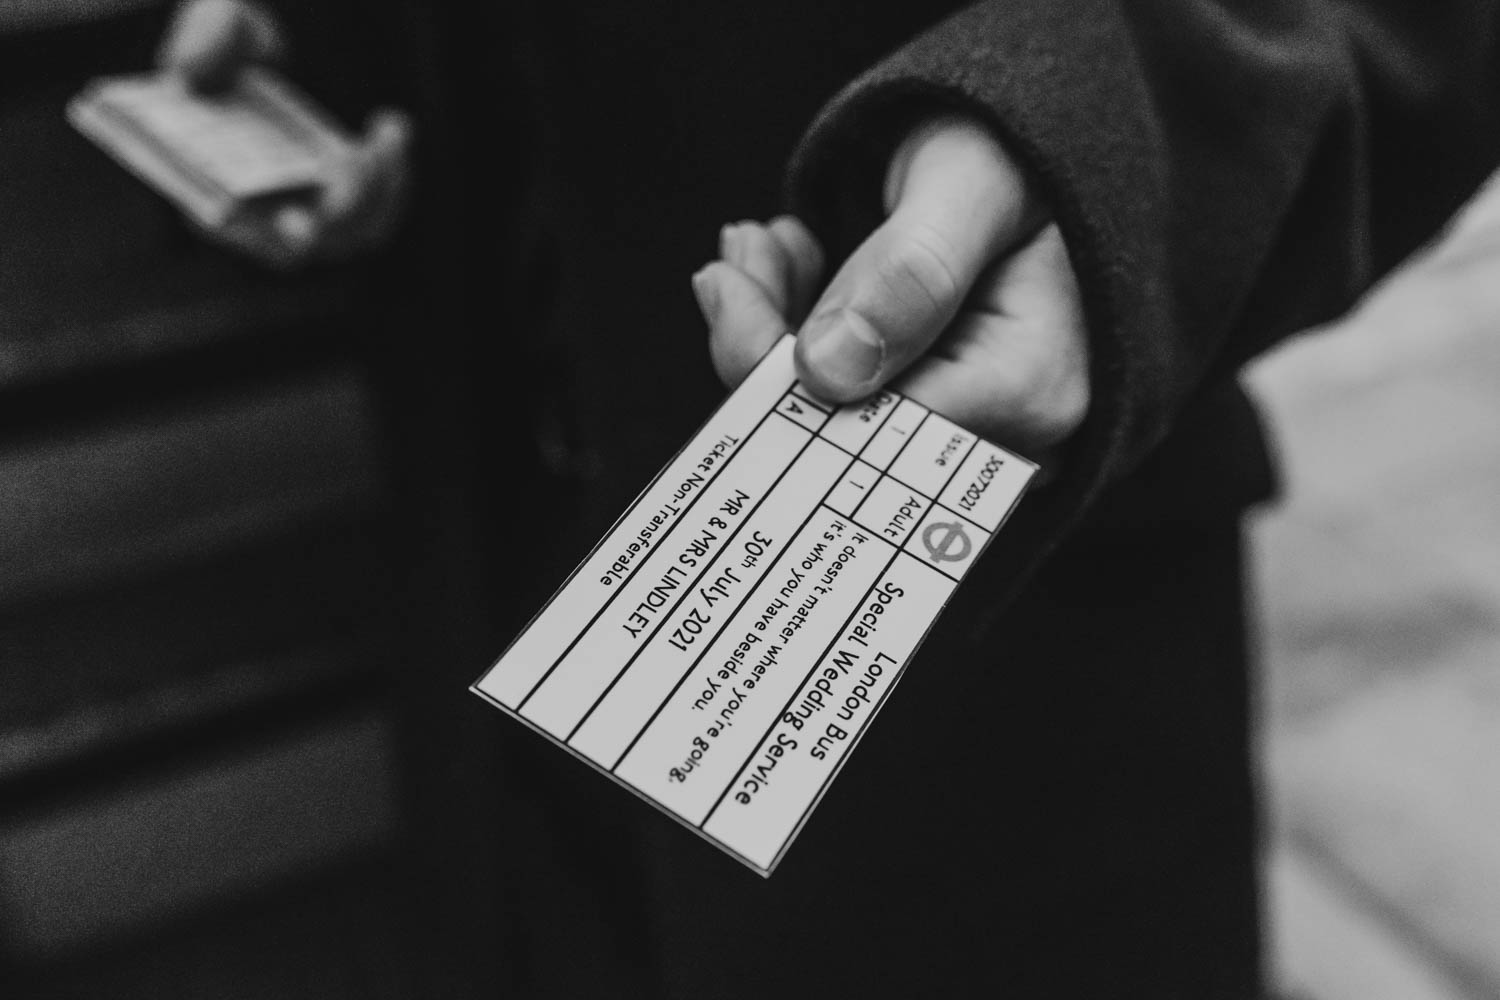 30072021
London Bus
Special Wedding Service
Issue
Adult
It doesn't matter where you're going,
it's who you have beside you.
1
1
Date
30th July 2021
A
MR & MRS LINDLEY
Ticket Non-Transferable